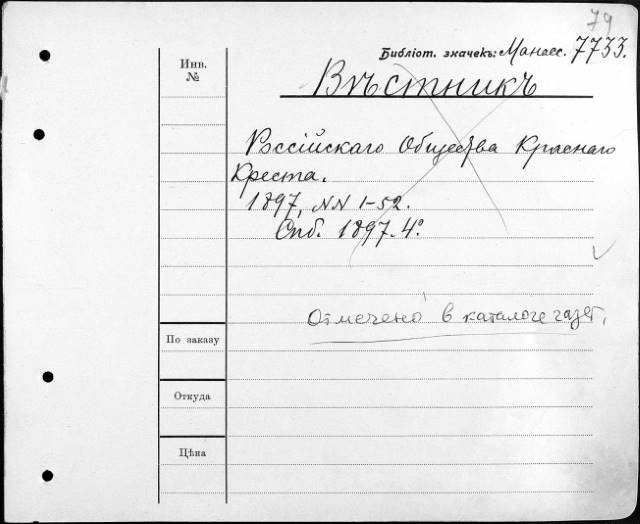 79
Библіот. значекъ: Манасс. 7733.
Инв.
№
Вѣстникъ
Россійскаго Общества Краснаго
Креста.
1897, NN 1-52.
Спб. 1897. 4º.
Отмечено в каталоге газет.
По заказу
Откуда
Цѣна